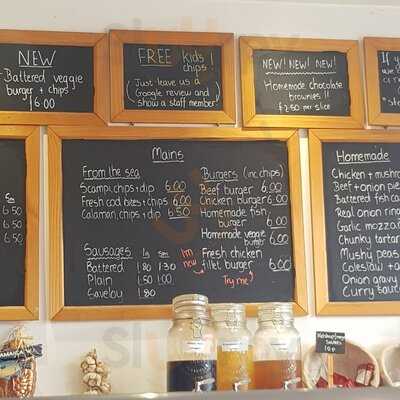 NEW
Battered veggie
burger + chips
£6.00
FREE kids
chips!
(Just leave us a
Google review and
show a staff member)
NEW! NEW! NEW!
Homemade chocolate
brownies !!
£2.50 per slice
If y
we c
or
+ sto
6 50
6 50
6 50
Mains
From the sea
Scampi, chips + dip 6.00
Fresh cod bites + chips 6.00
Calamari, chips + dip 6.50
Sausages Lg sm
Battered 1.80 1.30
Plain 1.50 1.00
Saveloy 1.80
I'm
new
Burgers (inc chips)
Beef burger 6.00
Chicken burger 6.00
Homemade fish
burger 6.00
Homemade veggie
burger 6.00
Fresh chicken
fillet burger 6.00
Try me!
Homemade
Chicken + mush
Beef + onion pie
Battered fish ca
Real onion ring
Garlic mozza
Chunky tartar
Mushy peas
Coleslaw +
Onion gravy
Curry sauce